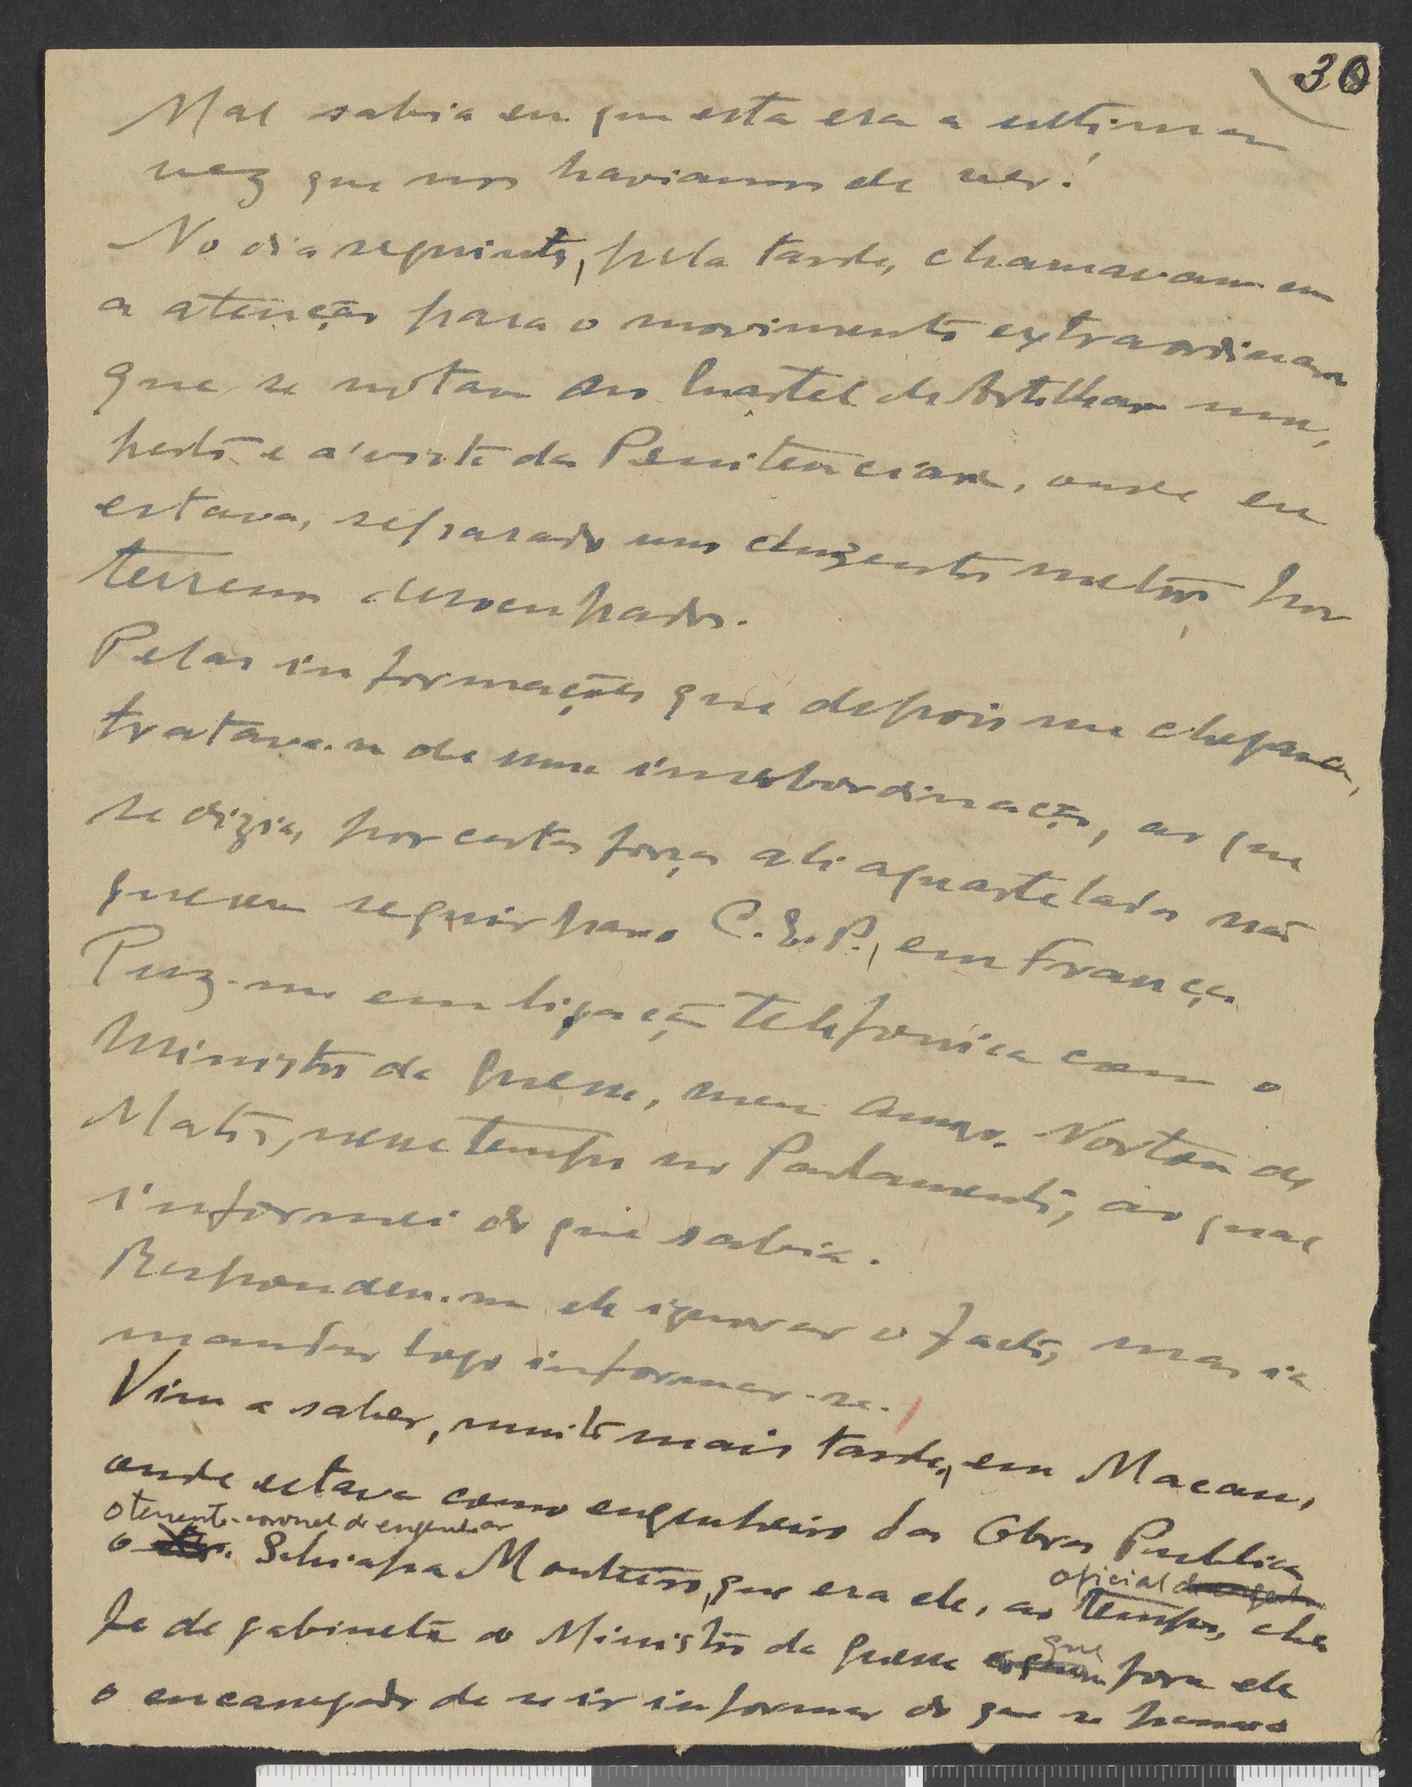 30
Mal sabia eu que esta era a ultima
vez que nos haviamos de ver!
No dia seguinte, pela tarde, chamavam-me
a atenção para o movimento extraordinario
que se notava no Quartel de Artilharia um,
perto e á vista da Penitenciaria, onde eu
estava, separado uns duzentos metros por
terrenos desocupados.
Pelas informações que depois me chegaram,
tratava-se de uma insubordinação, ao que
se dizia, por certas forças ali aquarteladas não
querem seguir para o C.E.P., em França.
Puz-me em ligação telefonica com o
Ministro da Guerra, meu amigo Norton de
Matos, nesse tempo no Parlamento, ao qual
informei do que sabia.
Respondeu-me ele ignorar o facto, mas ia
mandar logo informar-se.
Vim a saber, muito mais tarde, em Macau,
onde estava como engenheiro das Obras Publicas
o tenente-coronel de engenharia
o Schiapa Monteiro, que era ele, ao tempo, che
oficial
fe de gabinete do Ministro da Guerra que fora ele
o encarregado de se ir informar do que se passava